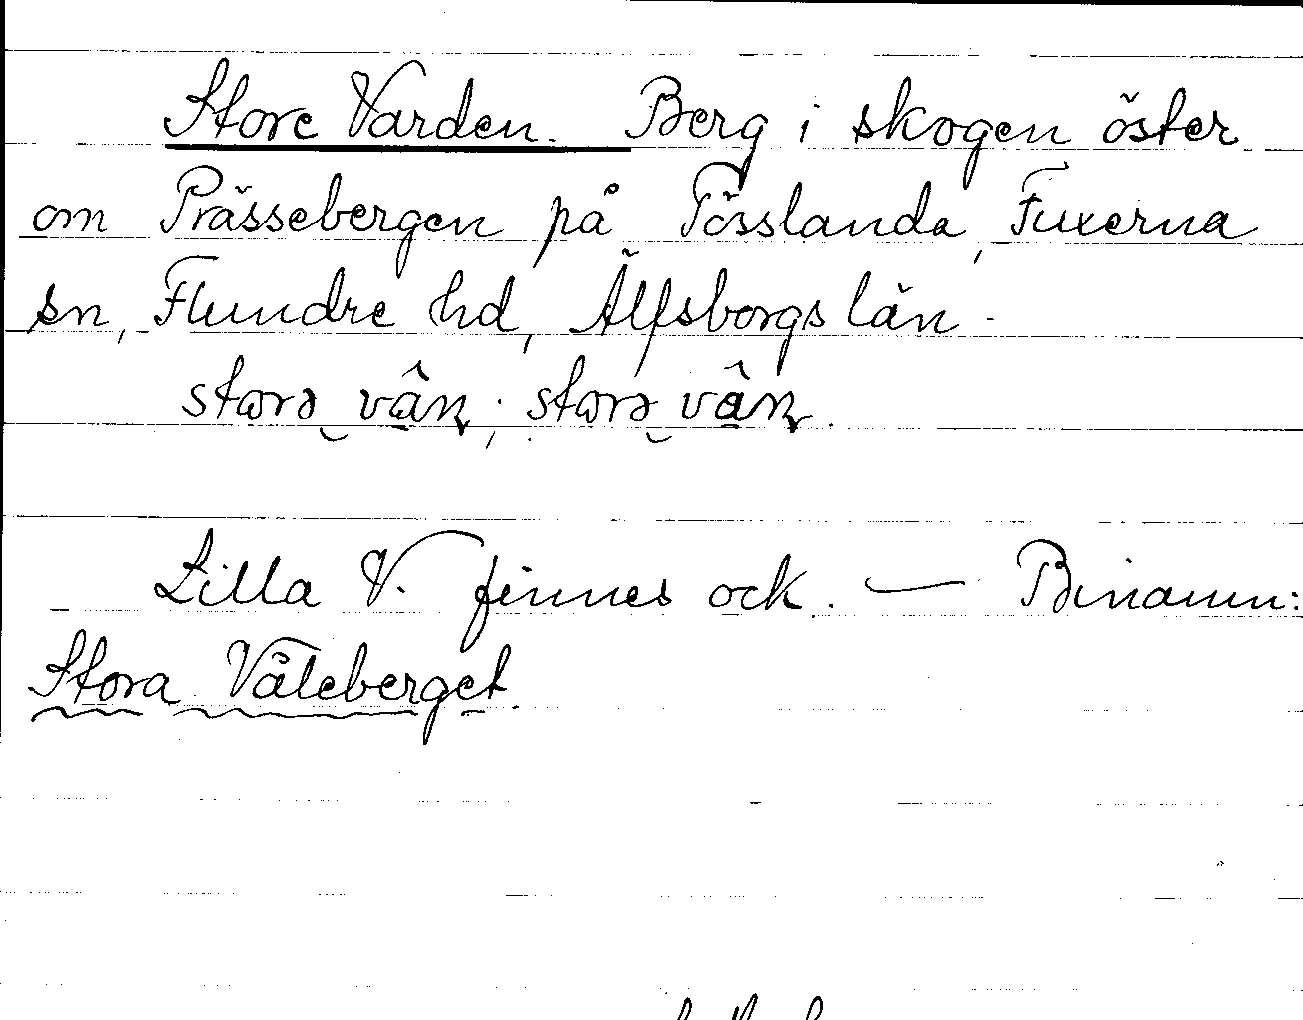 Store Varden. Berg i skogen öster
om Prässebergen på Tösslanda, Fuxerna
sn, Flundre hd, Älfsborgs län.
Lilla V. finnes ock. — Binamn:
Stora Våleberget.